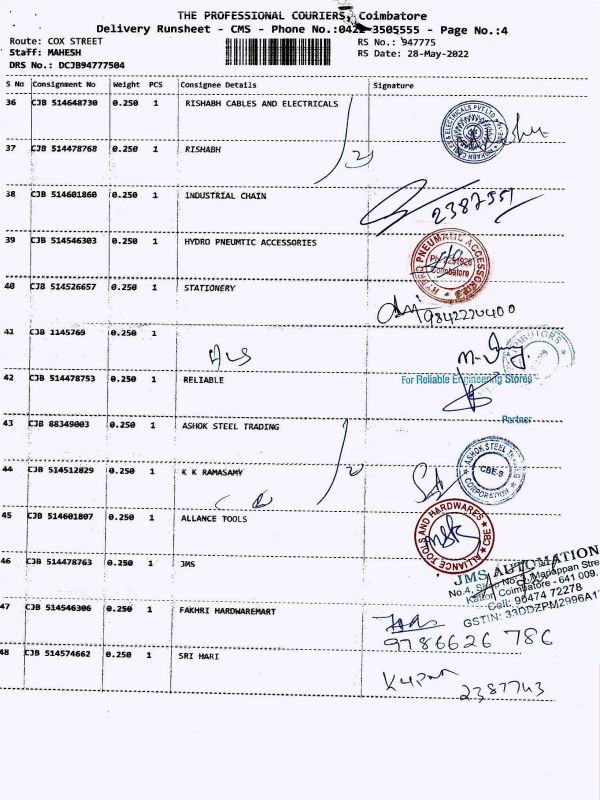 THE PROFESSIONAL COURIERS, Coimbatore
Delivery Runsheet - CMS - Phone No.:0422-3505555 - Page No.:4
Route: COX STREET RS No.: 947775
Staff: MAHESH RS Date: 28-May-2022
DRS No.: DCJB94777504
S No Consignment No Weight PCS Consignee Details Signature
36 CJB 514648730 0.250 1 RISHABH CABLES AND ELECTRICALS
37 CJB 514478768 0.250 1 RISHABH
2
38 CJB 514601860 0.250 1 INDUSTRIAL CHAIN
2387551
39 CJB 514546303 0.250 1 HYDRO PNEUMTIC ACCESSORIES
HYDRO PNEUMATIC ACCESSORIES
Coimbatore
40 CJB 514526657 0.250 1 STATIONERY
9842220400
41 CJB 1145769 0.250 1
42 CJB 514478753 0.250 1 RELIABLE
For Reliable Engineering Stores
Partner
43 CJB 88349003 0.250 1 ASHOK STEEL TRADING
44 CJB 514512829 0.250 1 K K RAMASAMY
2
ASHOK STEEL
CBE-9
CORPORATION
45 CJB 514601807 0.250 1 ALLANCE TOOLS
ALLIANCE TOOLS AND HARDWARES CBE
46 CJB 514478763 0.250 1 JMS
JMS AUTOMATION
Coimbatore - 641 009.
Cell: 90474 72278
GSTIN: 33DDZPM2996A1
47 CJB 514546306 0.250 1 FAKHRI HARDWAREMART
9786626 786
48 CJB 514574662 0.250 1 SRI HARI
2387743